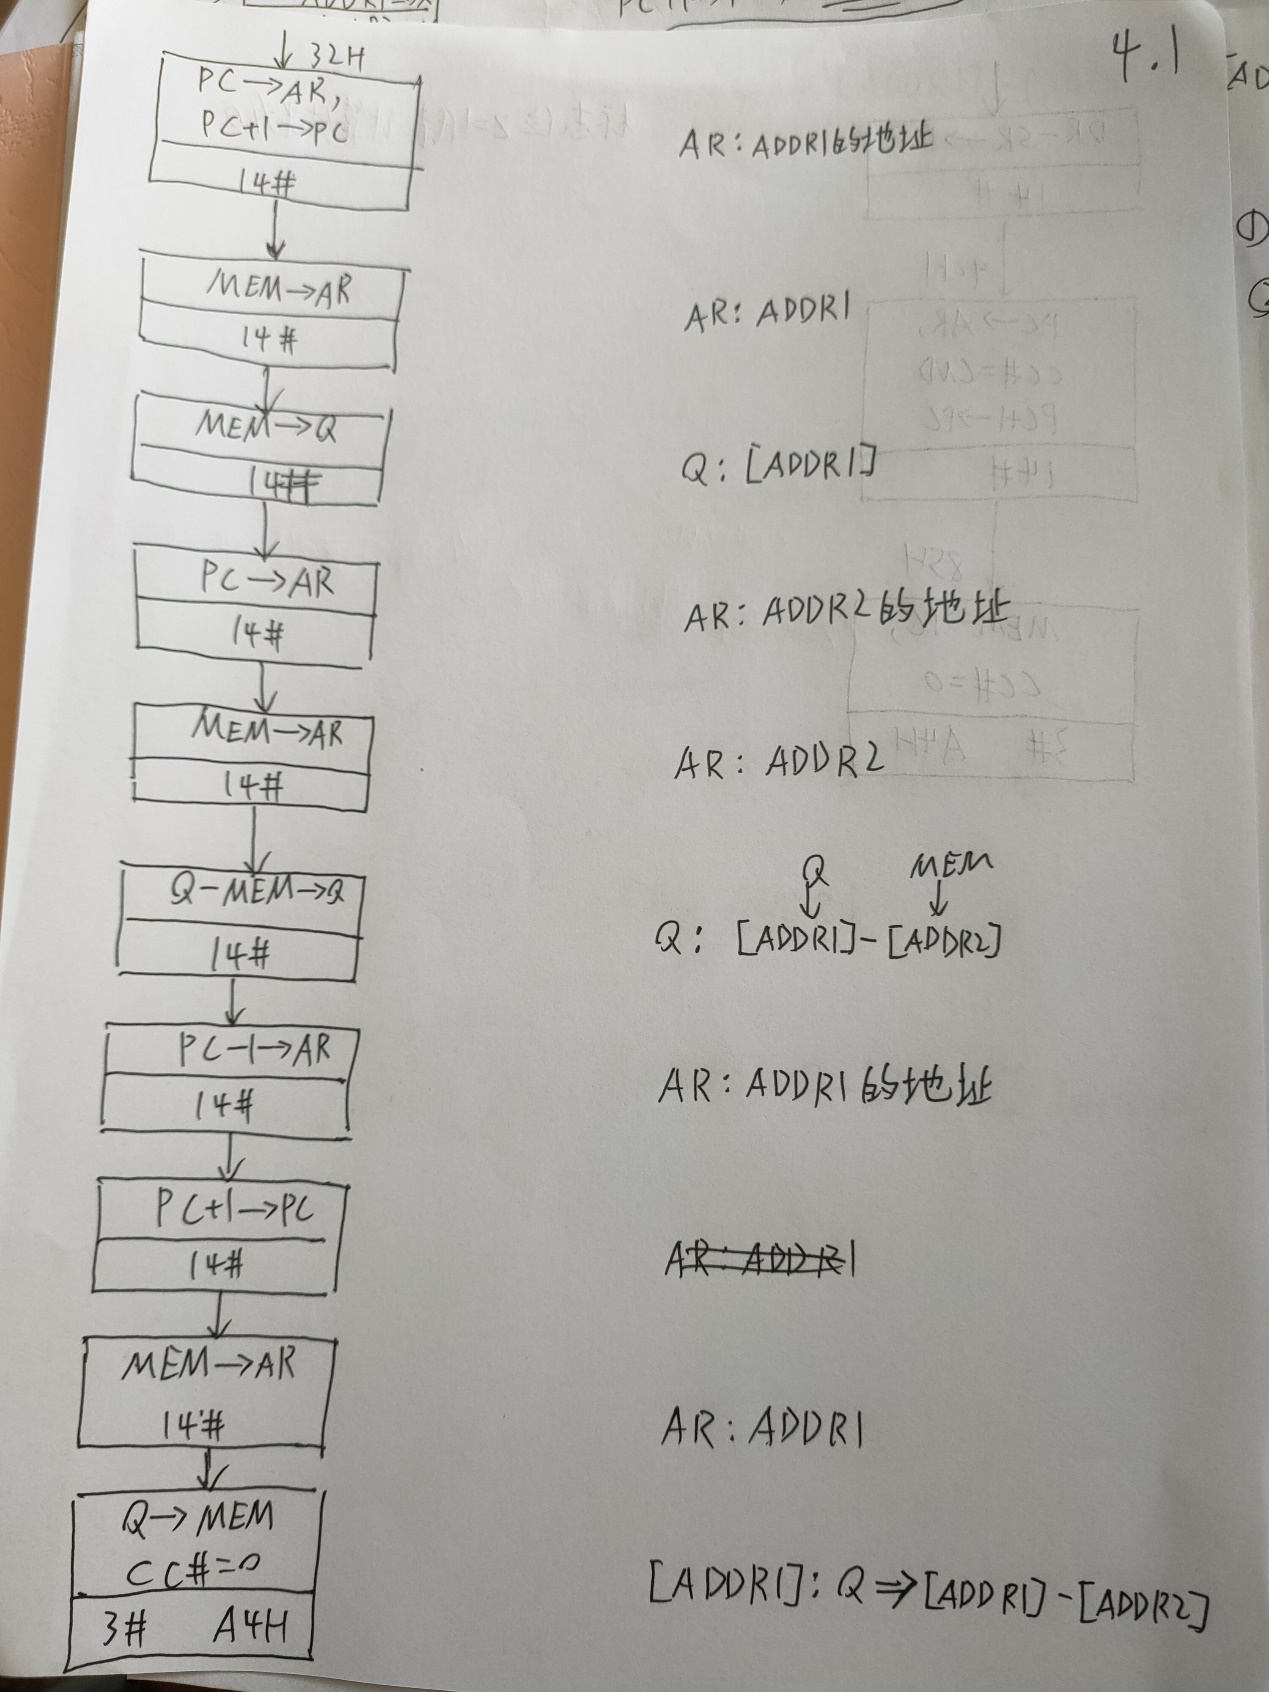 4.1
32H
PC→AR,
PC+1→PC
14#
AR: ADDR1的地址
MEM→AR
14#
AR: ADDR1
MEM→Q
14#
Q: [ADDR1]
PC→AR
14#
AR: ADDR2的地址
MEM→AR
14#
AR: ADDR2
Q-MEM→Q
14#
Q MEM
Q: [ADDR1]-[ADDR2]
PC-1→AR
14#
AR: ADDR1的地址
PC+1→PC
14#
AR: ADDR1
MEM→AR
14#
AR: ADDR1
Q→MEM
CC#=0
3# A4H
[ADDR1]: Q⇒[ADDR1]-[ADDR2]